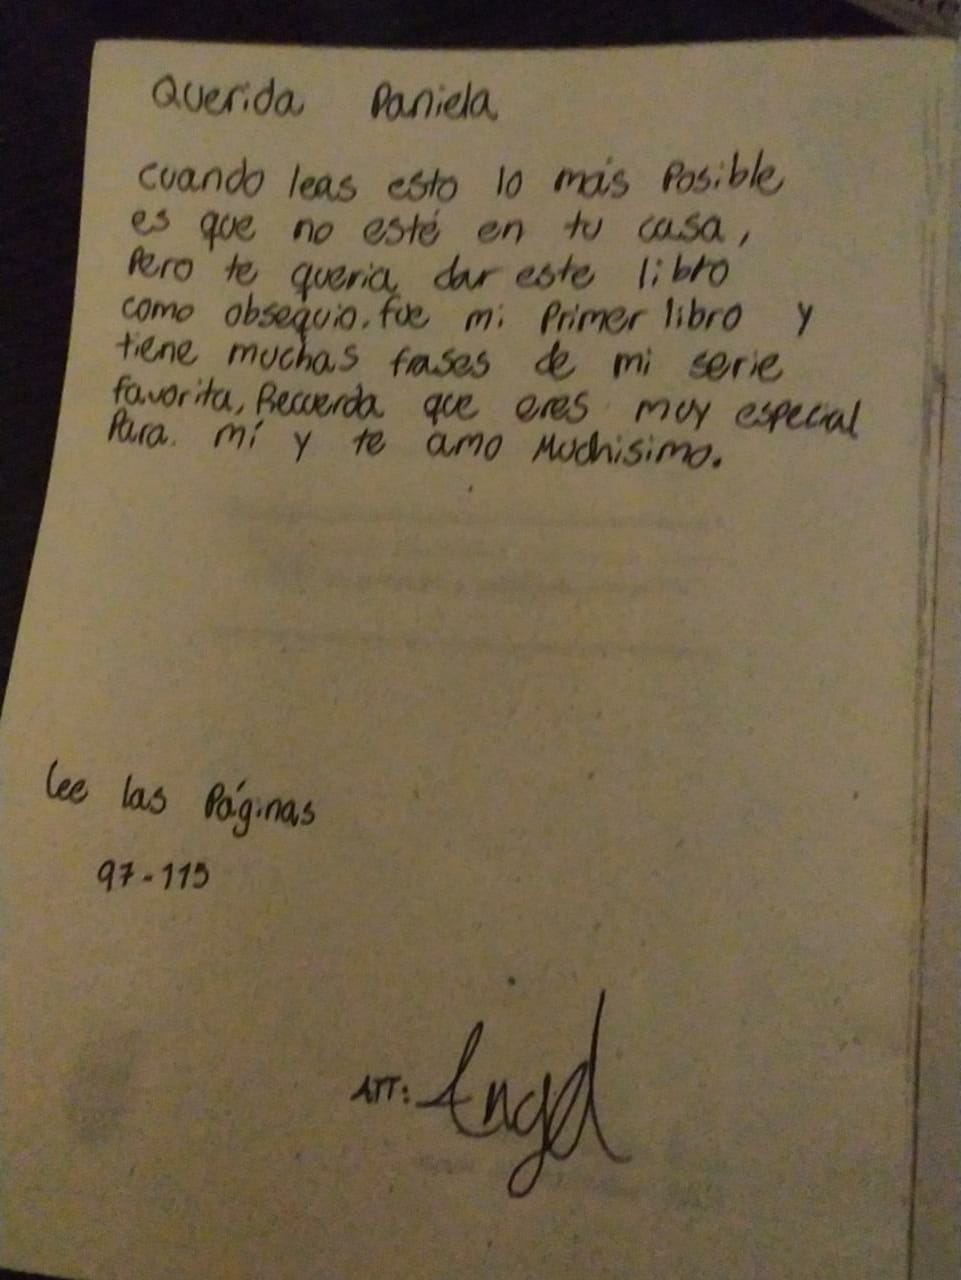 Querida Daniela
cuando leas esto lo más Posible
es que no esté en tu casa,
Pero te queria dar este libro
como obsequio. fue mi Primer libro y
tiene muchas frases de mi serie
favorita, Recuerda que eres muy especial
Para mí y te amo Muchisimo.
lee las Páginas
97-115
ATT: Angel